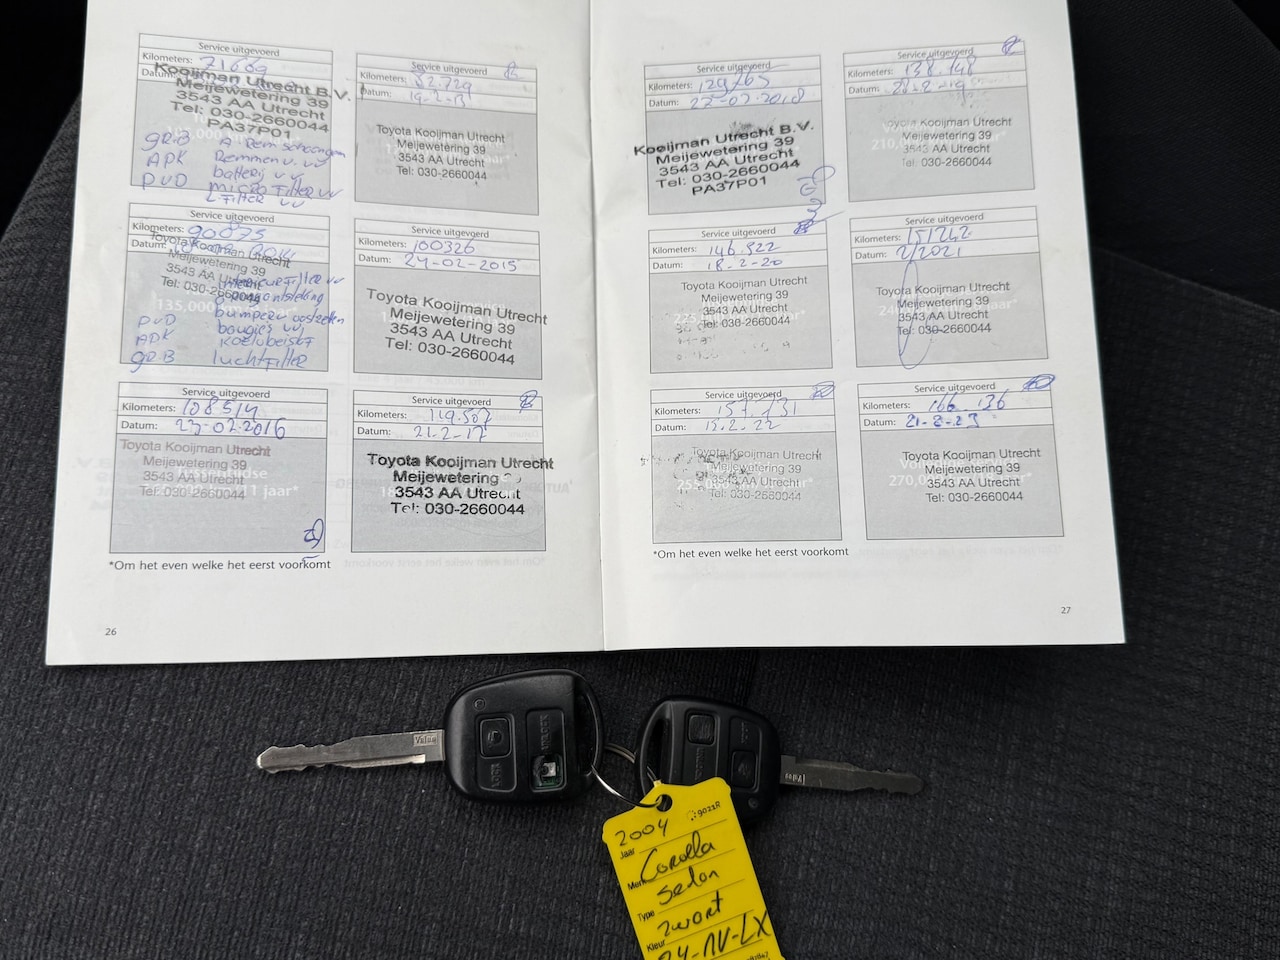 Service uitgevoerd
Kilometers: 71669
Datum:
Kooijman Utrecht B.V.
Meijewetering 39
3543 AA Utrecht
Tel: 030-2660044
PA37P01
GRB
APK
DVD
A Rem schoongem
Remmen v. vv
batterij vv
micro Filter vv
Service uitgevoerd
Kilometers: 82.729
Datum: 19-2-13
Toyota Kooijman Utrecht
Meijewetering 39
3543 AA Utrecht
Tel: 030-2660044
Service uitgevoerd
Kilometers: 90875
Datum:
Toyota Kooijman Utrecht
Meijewetering 39
3543 AA Utrecht
Tel: 030-2660044
135.000
DVD
APK
GRB
bougies vv
luchtfilter
Service uitgevoerd
Kilometers: 100326
Datum: 24-02-2015
Toyota Kooijman Utrecht
Meijewetering 39
3543 AA Utrecht
Tel: 030-2660044
Service uitgevoerd
Kilometers: 108514
Datum: 23-02-2016
Toyota Kooijman Utrecht
Meijewetering 39
3543 AA Utrecht
Tel: 030-2660044
1 jaar*
Service uitgevoerd
Kilometers: 119.507
Datum: 21-2-17
Toyota Kooijman Utrecht
Meijewetering
3543 AA Utrecht
Tel: 030-2660044
*Om het even welke het eerst voorkomt
26
Service uitgevoerd
Kilometers: 129765
Datum: 22-02-2018
Kooijman Utrecht B.V.
Meijewetering 39
3543 AA Utrecht
Tel: 030-2660044
PA37P01
Service uitgevoerd
Kilometers: 138.148
Datum:
Toyota Kooijman Utrecht
Meijewetering 39
3543 AA Utrecht
Tel: 030-2660044
210.
Service uitgevoerd
Kilometers: 146.522
Datum: 18-2-20
Toyota Kooijman Utrecht
Meijewetering 39
3543 AA Utrecht
Tel: 030-2660044
Service uitgevoerd
Kilometers: 151242
Datum: 2/2021
Toyota Kooijman Utrecht
Meijewetering 39
3543 AA Utrecht
Tel: 030-2660044
240
Service uitgevoerd
Kilometers: 157.131
Datum: 15.2.22
Toyota Kooijman Utrecht
Meijewetering 39
3543 AA Utrecht
Tel: 030-2660044
255
Service uitgevoerd
Kilometers: 166 136
Datum: 21-8-23
Toyota Kooijman Utrecht
Meijewetering 39
3543 AA Utrecht
Tel: 030-2660044
270.000
*Om het even welke het eerst voorkomt
27
LOCK
UNLOCK
2004
Jaar
Corolla
Merk
Sedan
Type
zwart
Kleur
24-NV-LX